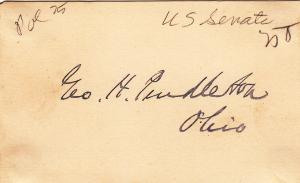 Pol 25
US Senate
Geo. H. Pendleton
Ohio